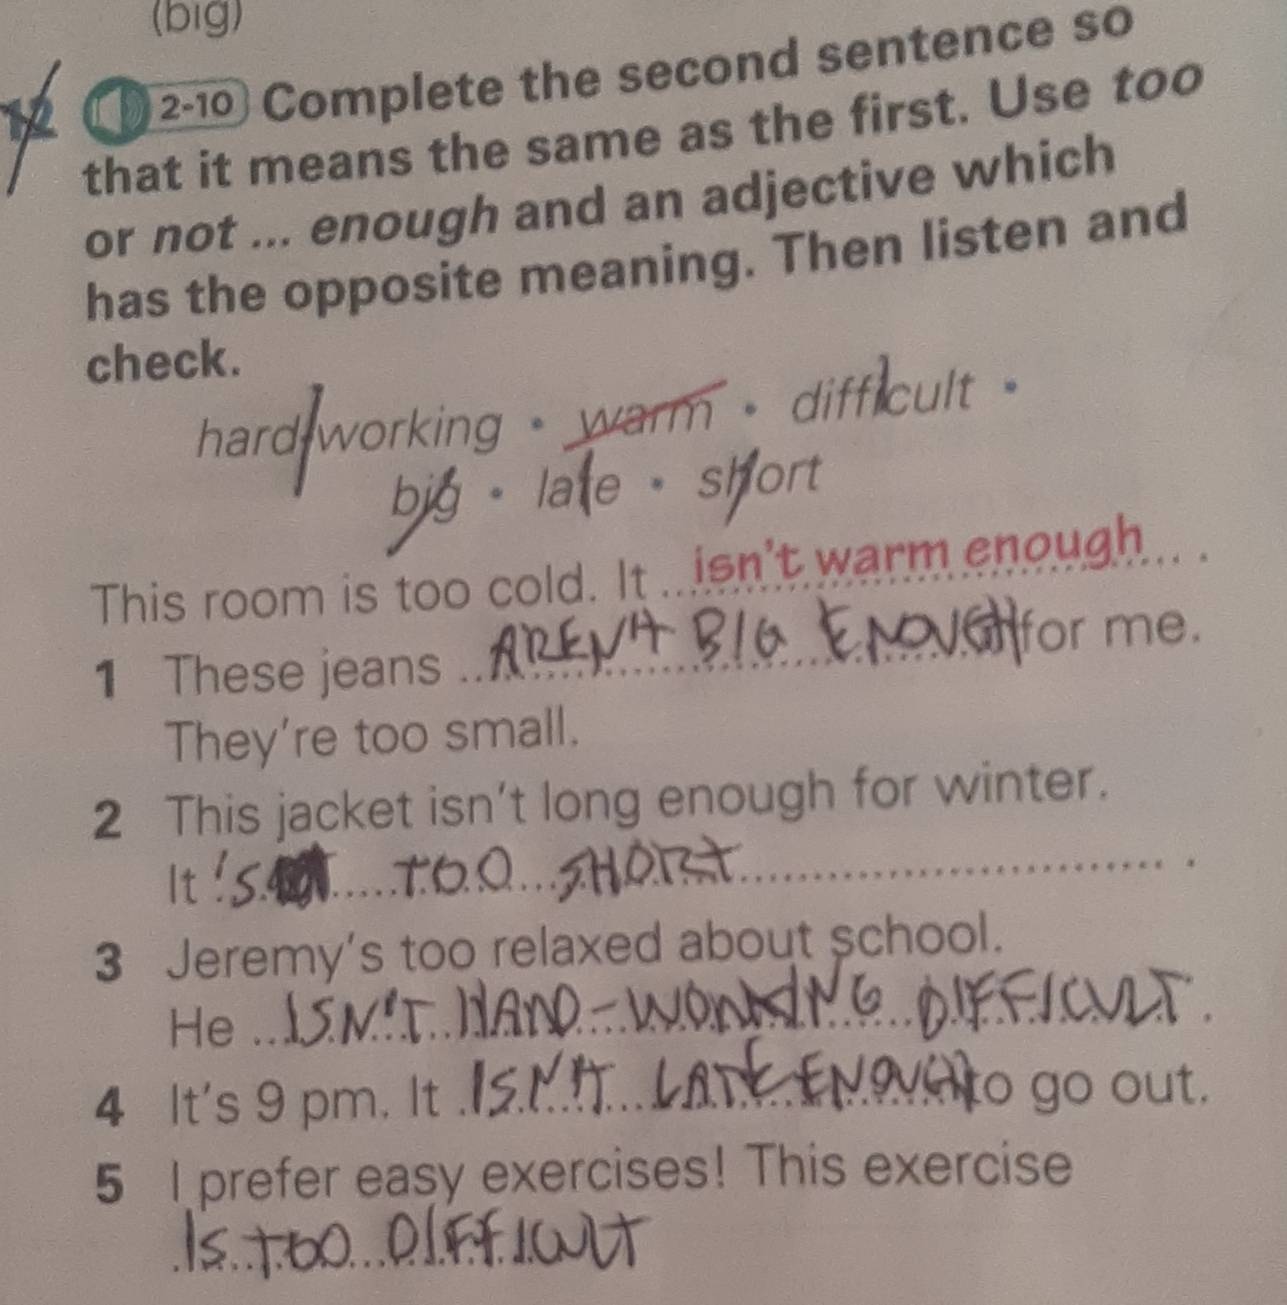 (big)
12 2-10 Complete the second sentence so
that it means the same as the first. Use too
or not ... enough and an adjective which
has the opposite meaning. Then listen and
check.
hard-working • warm • difficult •
big • late • short
This room is too cold. It ...isn't warm enough... .
1 These jeans ..AREN'T BIG ENOUGH for me.
They're too small.
2 This jacket isn't long enough for winter.
It 'S TOO SHORT .
3 Jeremy's too relaxed about school.
He ...ISN'T HARD-WORKING DIFFICULT .
4 It's 9 pm. It ISN'T LATE ENOUGH to go out.
5 I prefer easy exercises! This exercise
IS TOO DIFFICULT